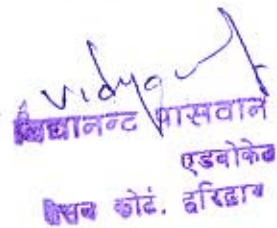 vidya
विद्यानन्द पासवान
एडवोकेट
सेशन कोर्ट, हरिद्वार